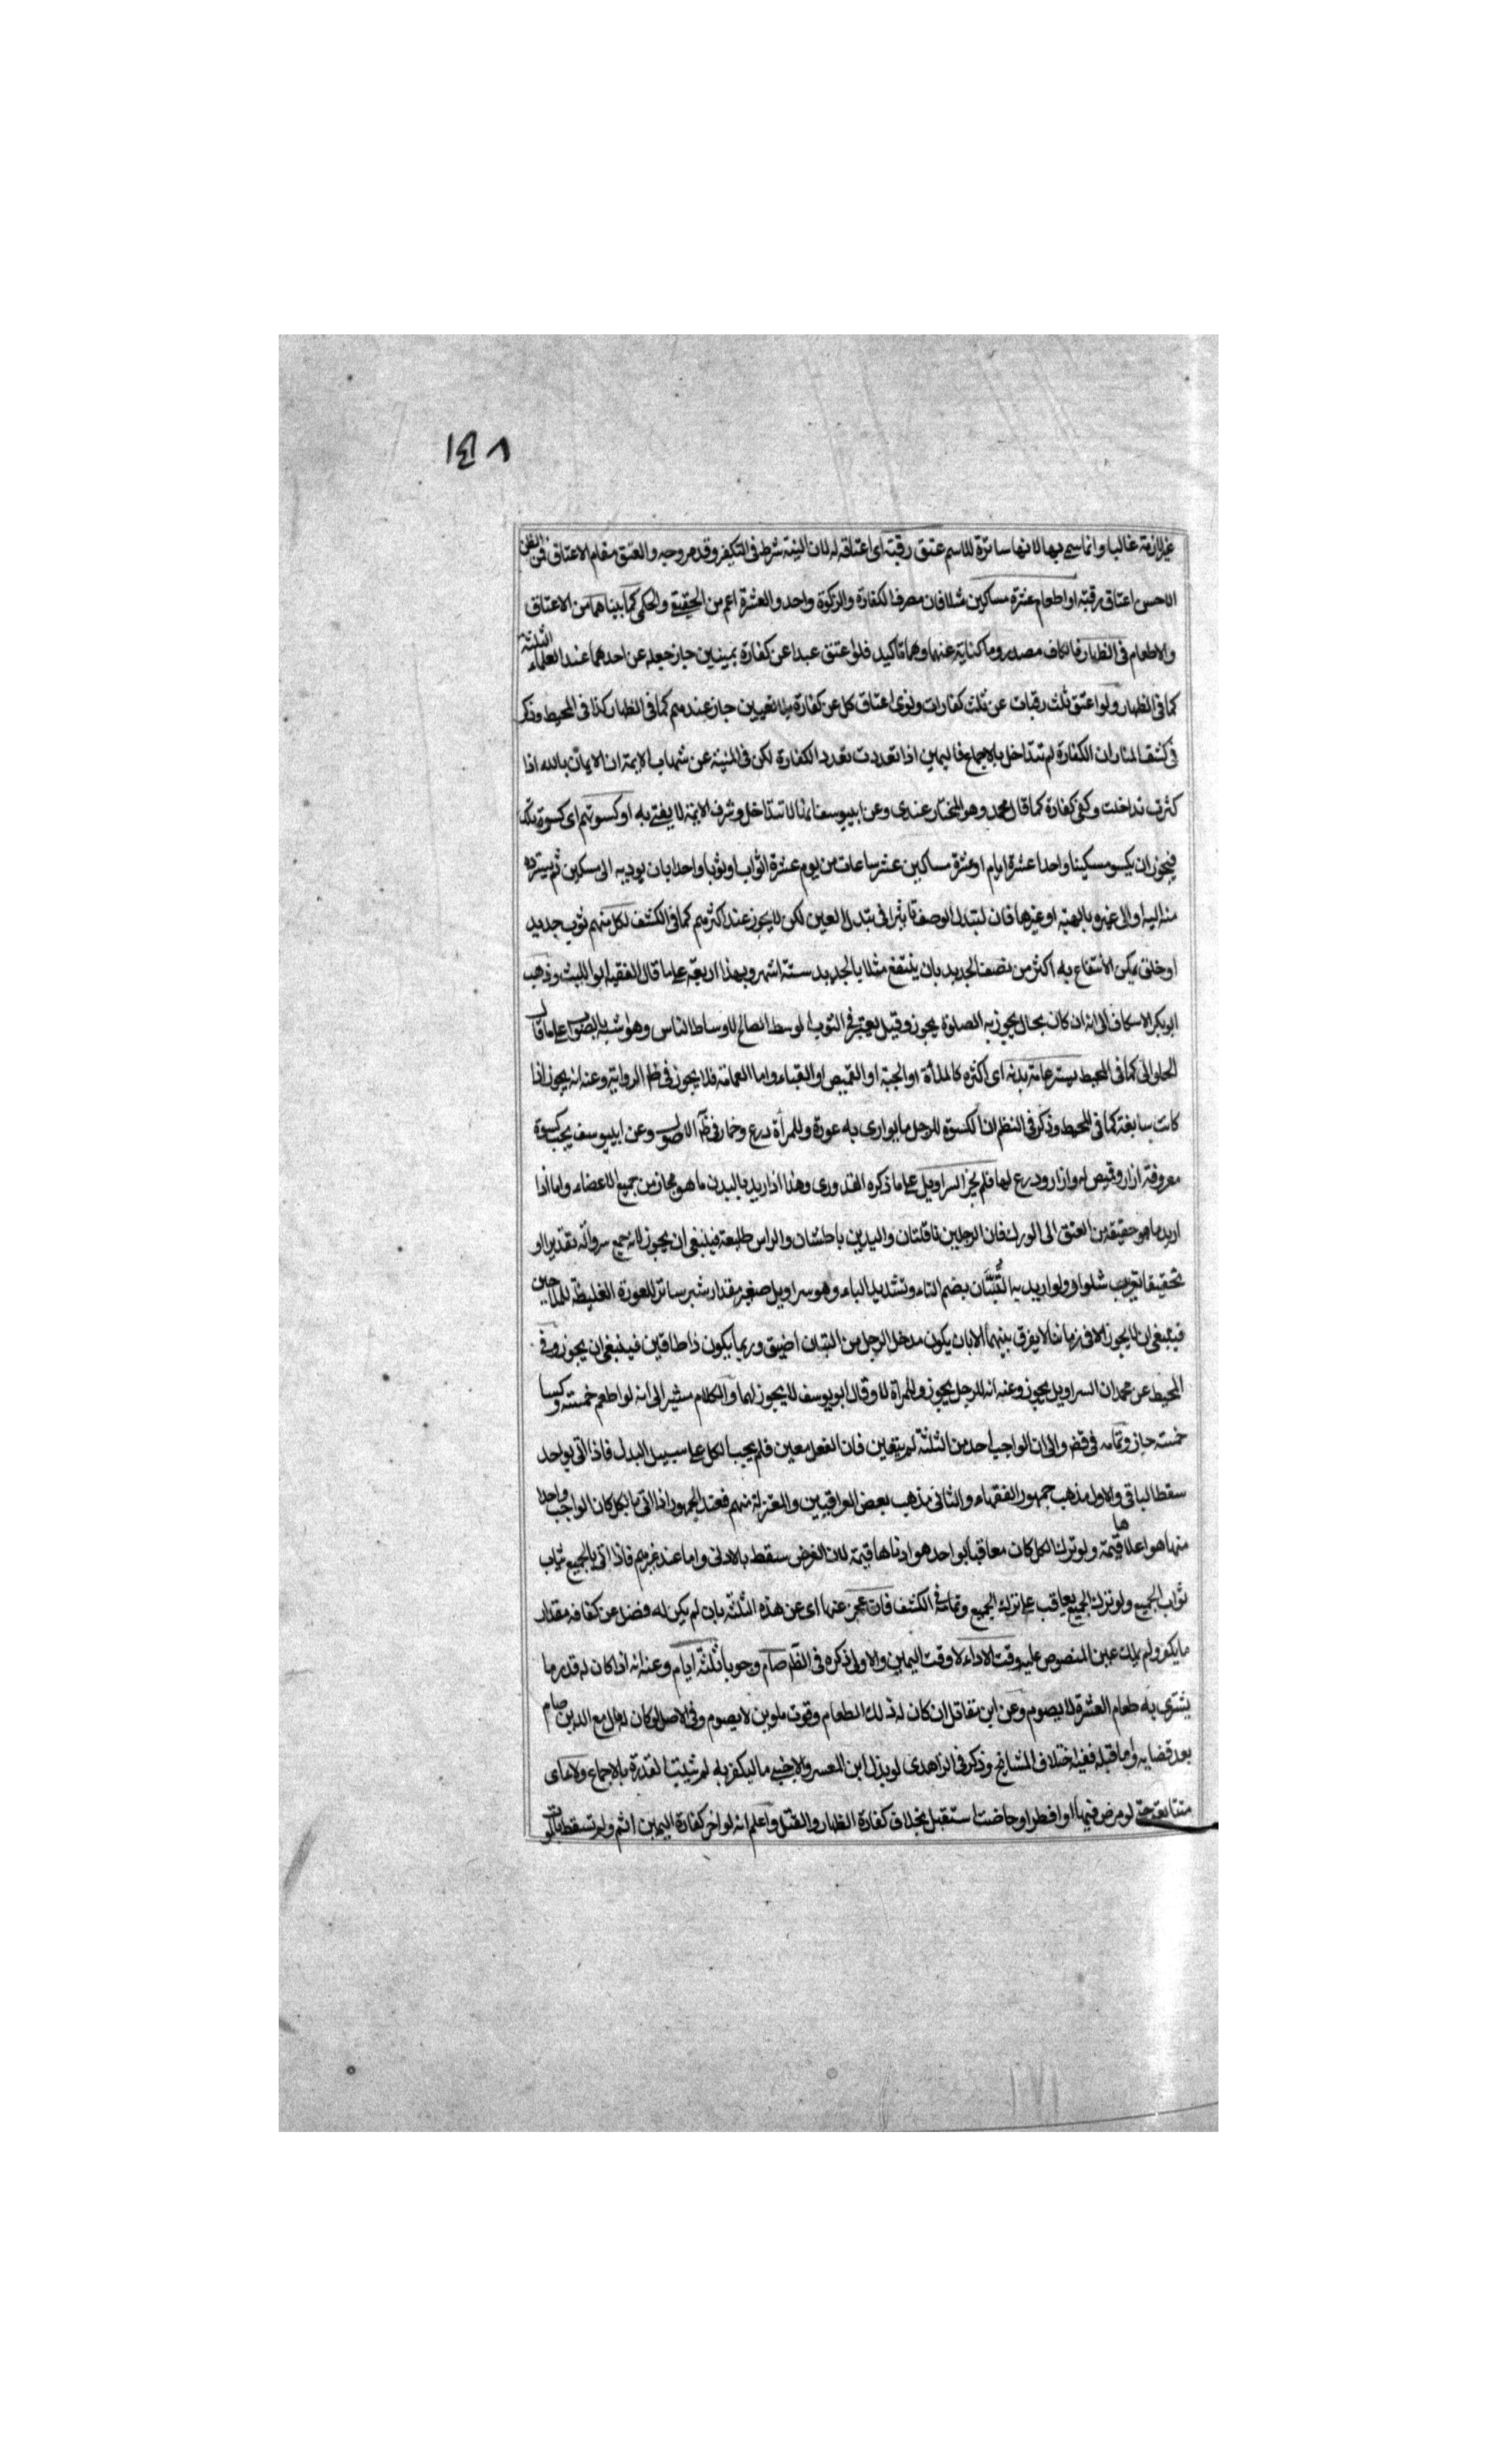 ١٤٨
غير لازمة غالبا وانما سمي بها لانها ساترة للاسم عتق رقبة اى اعتاقه له لان النية شرط فى التكفير وقد مر وجه والعتق مقام الاعتاق فمن الظن
الاحسن اعتاق رقبة او اطعام عشرة مساكين مثلا فان مصرف الكفارة والزكوة واحد والعشرة اعم من الحقيقى والحكمى كما بيناهما من الاعتاق
والاطعام فى الظهار فالكاف مصدر وما كناية عنهما وهما تاكيد فلو اعتق عبدا عن كفارة يمينين جاز جعله عن احدهما عند العلماء الثلثة
كما فى الظهار ولو اعتق ثلث رقبات عن ثلث كفارات ونوى اعتاق كل عن كفارة بلا تعيين جاز عندهم كما فى الظهار كذا فى المحيط وذكر
فى كشف المنار ان الكفارة لم تتداخل بالاجماع فاليمين اذا تعددت تعدد الكفارة لكن فى المنية عن شهاب الايمة ان الايمان بالله اذا
كثرت تداخلت وكفى كفارة كما قال محمد وهو المختار عندى وعن ابي يوسف انها لا تتداخل وشرف الايمة لا يفتى به او كسوتهم اى كسوة تلك
فيجوز ان يكسو مسكينا واحدا عشرة ايام او عشرة مساكين عشر ساعات من يوم عشرة اثواب او ثوبا واحدا بان يوديه الى مسكين ثم يسترده
منه اليه او الى غيره بالهبة او غيرها فان لتبدل الوصف تاثيرا فى تبدل العين لكن لا يجوز عند اكثرهم كما فى الكشف لكل منهم ثوب جديد
او خلق يمكن الانتفاع به اكثر من نصف الجديد بان ينتفع مثلا بالجديد ستة اشهر وبهذا اربعة على ما قال الفقيه ابو الليث وذهب
ابو بكر الاسكاف الى انه ان كان بحال يجوز به الصلوة يجوز وقيل يعتبر فى الثوب الوسط الصالح لاوساط الناس وهو اشبه بالصواب على ما قال
الحلوانى كما فى المحيط يستر عامة بدنه اى اكثره كالملأة او الجبة او القميص او القباء واما العمامة فلا يجوز فى ظاهر الرواية وعنه انه يجوز اذا
كانت سابغة كما فى المحيط وذكر فى النظم ان الكسوة للرجل ما يوارى به عورة وللمرأة درع وخمار فى ظاهر الاصول وعن ابي يوسف يجب كسوة
معروفة ازار وقميص له وازار ودرع لها فلم يجز السراويل على ما ذكره القدورى وهذا اذا اريد بالبدن ما هو مجاز من جميع الاعضاء واما اذا
اريد ما هو حقيقة من العنق الى الورك فان الرجلين ناقلتان واليدين باطشتان والراس طليعة فينبغى ان يجوز لانه جمع سروالة تقديرا او
تحقيقا تعريب شلوار ولو اريد به التُّبَّان بضم التاء وتشديد الباء وهو سراويل صغير مقدار شبر ساتر للعورة الغليظة للملاحين
فينبغى ان لا يجوز الا فى زماننا لا يفرق بينهما الا بان يكون مدخل الرجل من التبان اضيق وربما يكون ذا طاقين فينبغى ان يجوز وفى
المحيط عن محمد ان السراويل يجوز وعنه انه للرجل يجوز وللمرأة لا وقال ابو يوسف لا يجوز لهما والكلام مشير الى انه لو اطعم خمسة وكسا
خمسة جاز وتمامه فى قضـ والى ان الواجب احد من الثلثة لم يتعين فان الفعل معين فلم يجب الكل على سبيل البدل فاذا اتى بواحد
سقط الباقى والاول مذهب جمهور الفقهاء والثانى مذهب بعض العراقيين والمعتزلة منهم فعند الجمهور اذا اتى بالكل كان الواجب واحدا
منها هو اعلاها قيمة ولو ترك الكل كان معاقبا بواحد هو ادناها قيمة لان الفرض سقط بالادنى واما عند غيرهم فاذا اتى بالجميع يثاب
ثواب الجميع ولو ترك الجميع يعاقب على ترك الجميع وتمامه فى الكشف فان عجز عنها اى عن هذه الثلثة بان لم يكن له فضل عن كفافه مقدار
ما يكفر ولم يملك عين المنصوص عليه وقت الاداء لا وقت اليمين والاولى ذكره فى النظم صام وجوبا ثلثة ايام وعنه انه اذا كان له قدر ما
يشترى به طعام العشرة لا يصوم وعن ابن مقاتل ان كان له ذلك الطعام وقوت يومين لا يصوم وفى الاصل لو كان له مال مع الدين صام
بعد قضايه واما قبله ففيه اختلاف المشايخ وذكر فى الزاهدى لو بذل ابن المعسر والاجنبى مالا ليكفر به لم تثبت القدرة بالاجماع ولاء اى
متتابعة حتى لو مرض فيها او افطر او حاضت استقبل بخلاف كفارة الظهار والقتل واعلم انه لو اخر كفارة اليمين اثم ولم تسقط بالموت